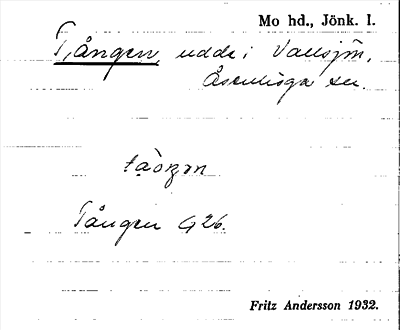 Mo hd., Jönk. l.
Tången, udde i Vallsjön,
Åsenhöga sn.
Tången G 26.
Fritz Andersson 1932.